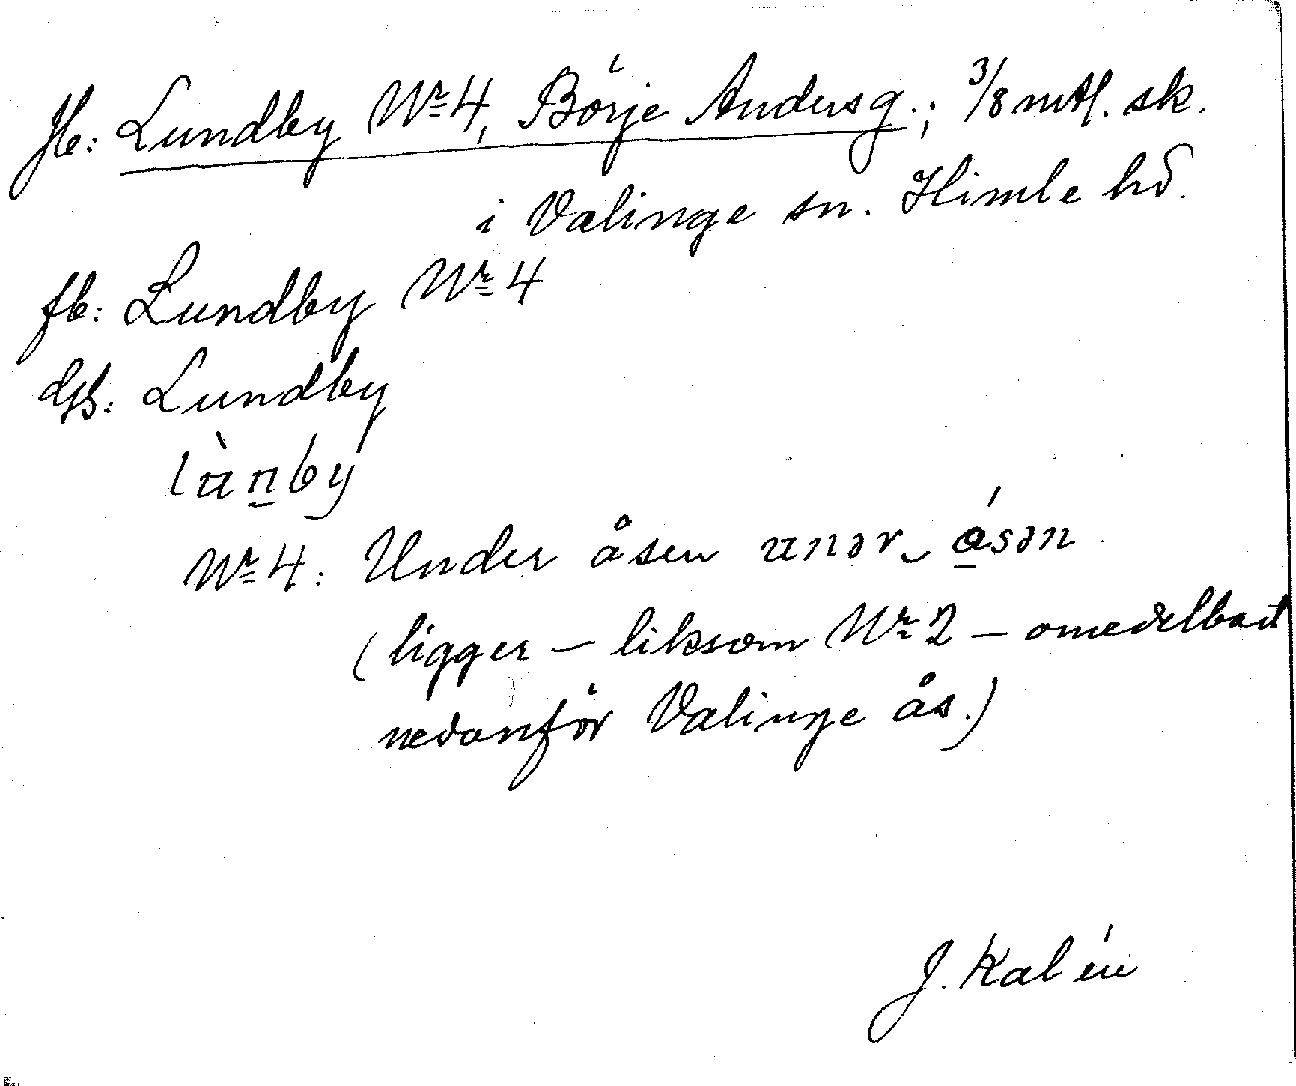 Jb: Lundby Nr 4, Börje Andersg.; 3/8 mtl. sk.
i Valinge sn. Himle hd.
fb: Lundby Nr 4
Gfb: Lundby
lùnby
Nr 4: Under åsen unər‿ åsən
(ligger – liksom Nr 2 – omedelbart
nedanför Valinge ås.)
J. Kalén